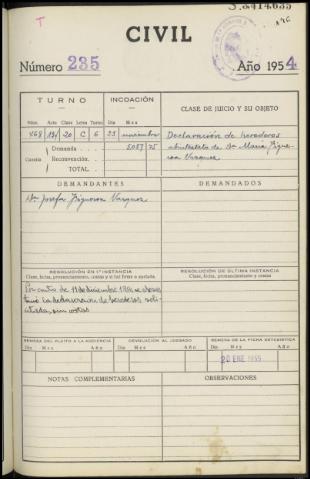 S.3414635
T
CIVIL
Número 235 Año 1954
TURNO INCOACIÓN CLASE DE JUICIO Y SU OBJETO
Núm. Año Clase Letra Turno Día Mes
20 C 6 25 noviembre Declaración de herederos
Cuantía Demanda 5087 75 abintestato de Dª María Figue-
Reconvención roa Vazquez
TOTAL
DEMANDANTES DEMANDADOS
Dª Josefa Figueroa Vazquez
RESOLUCIÓN EN 1ª INSTANCIA RESOLUCIÓN DE ÚLTIMA INSTANCIA
Clase, fecha, pronunciamiento, costas y si fué firme o apelada. Clase, fecha, pronunciamiento y costas.
Por auto de 11 diciembre 1954 se
la declaración de herederos soli-
citada, sin costas
REMESA DEL PLEITO A LA AUDIENCIA DEVOLUCIÓN AL JUZGADO REMESA DE LA FICHA ESTADÍSTICA
Día Mes Año Día Mes Año Día Mes Año
20 ENE 1955
NOTAS COMPLEMENTARIAS OBSERVACIONES